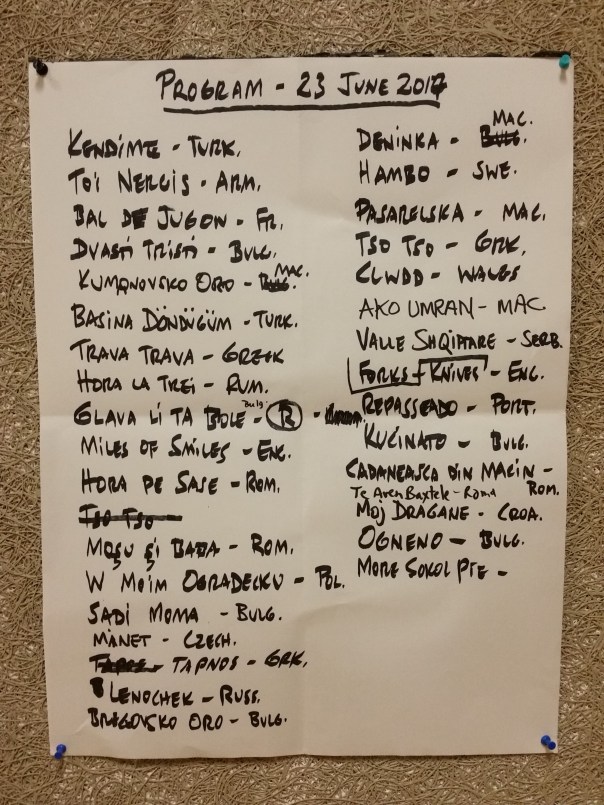 PROGRAM - 23 JUNE 2017
KENDİMTE - TURK.
TO'I NERGIS - ARM.
BAL DE JUGON - FR.
DVASTI TRISTI - BULG.
KUMANOVSKO ORO - MAC.
BASINA DÖNDÜGÜM - TURK.
TRAVA TRAVA - GREEK
HORA LA TREI - RUM.
GLAVA LI TA BOLE - Bulg. R -
MILES OF SMILES - ENG.
HORA PE SASE - ROM.
TSO TSO
MOŞU ŞI BABA - ROM.
W MOIM OGRADECKU - POL.
SADI MOMA - BULG.
MANET - CZECH.
TAPNOS - GRK.
LENOCHEK - RUSS.
BREGOVSKO ORO - BULG.
DENINKA - MAC.
HAMBO - SWE.
PASARELSKA - MAC.
TSO TSO - GRK.
CLWDD - WALES
AKO UMRAN - MAC
VALLE SHQIPTARE - SERB.
FORKS + KNIVES - ENG.
REPASSEADO - PORT.
KUCINATO - BULG.
CADANEASCA DIN MACIN - ROM.
Te Aven Baxtale - Roma
MOJ DRAGANE - CROA.
OGNENO - BULG.
MORE SOKOL PIE -